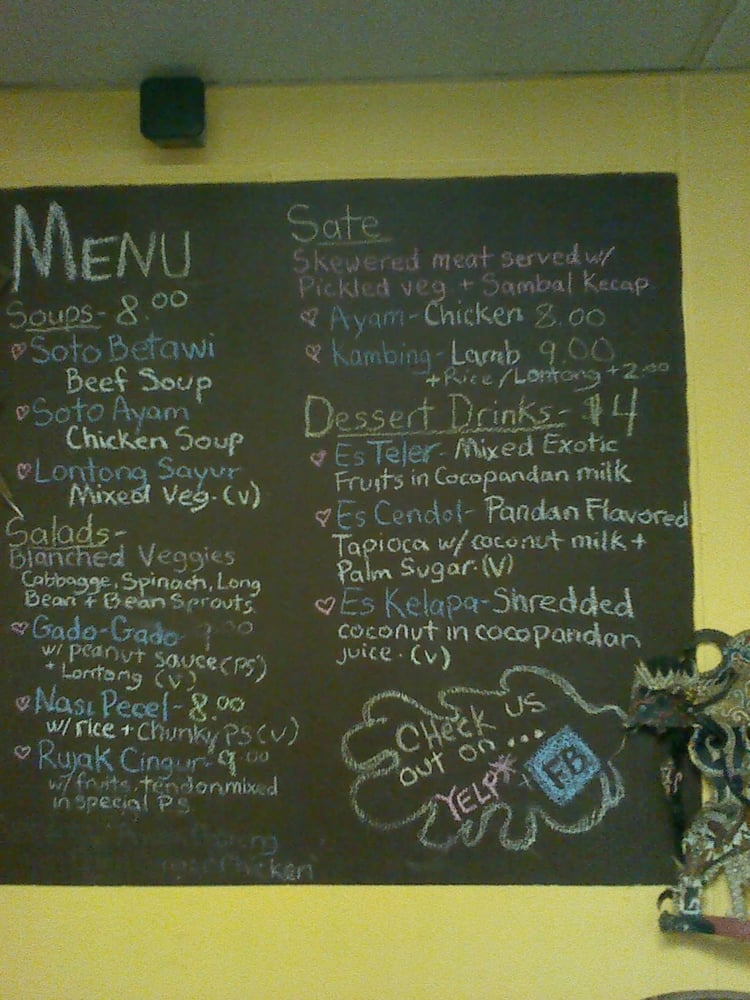 MENU
Soups- 8.00
Soto Betawi
Beef Soup
Soto Ayam
Chicken Soup
Lontong Sayur
Mixed Veg. (v)
Salads-
Blanched Veggies
Cabbagge, Spinach, Long
Bean + Bean Sprouts
Gado-Gado 9.00
w/ peanut sauce (PS)
+ Lontong (v)
Nasi Pecel- 8.00
w/ rice + Chunky PS (v)
Rujak Cingur- 9.00
w/ fruits, tendon mixed
in special PS
Chicken
Sate
Skewered meat served w/
Pickled veg + Sambal Kecap
Ayam- Chicken 8.00
Kambing- Lamb 9.00
+ Rice / Lontong +2.00
Dessert Drinks- $4
Es Teler- Mixed Exotic
Fruits in Cocopandan milk
Es Cendol- Pandan Flavored
Tapioca w/ coconut milk +
Palm Sugar. (V)
Es Kelapa- Shredded
coconut in cocopandan
juice. (v)
CHeck us
out on...
YELP* + FB